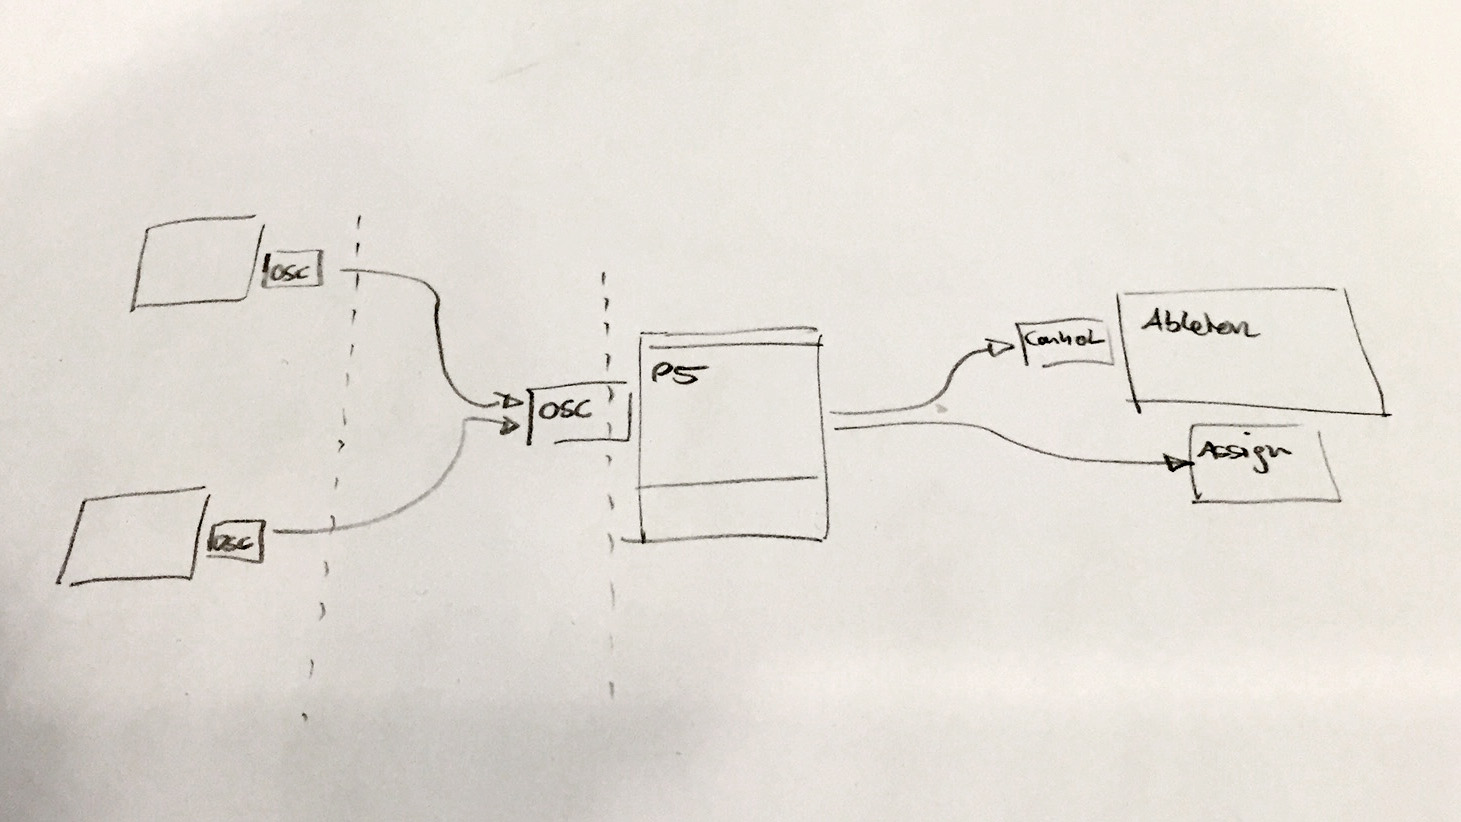 OSC
OSC
OSC
P5
Control
Ableton
Assign